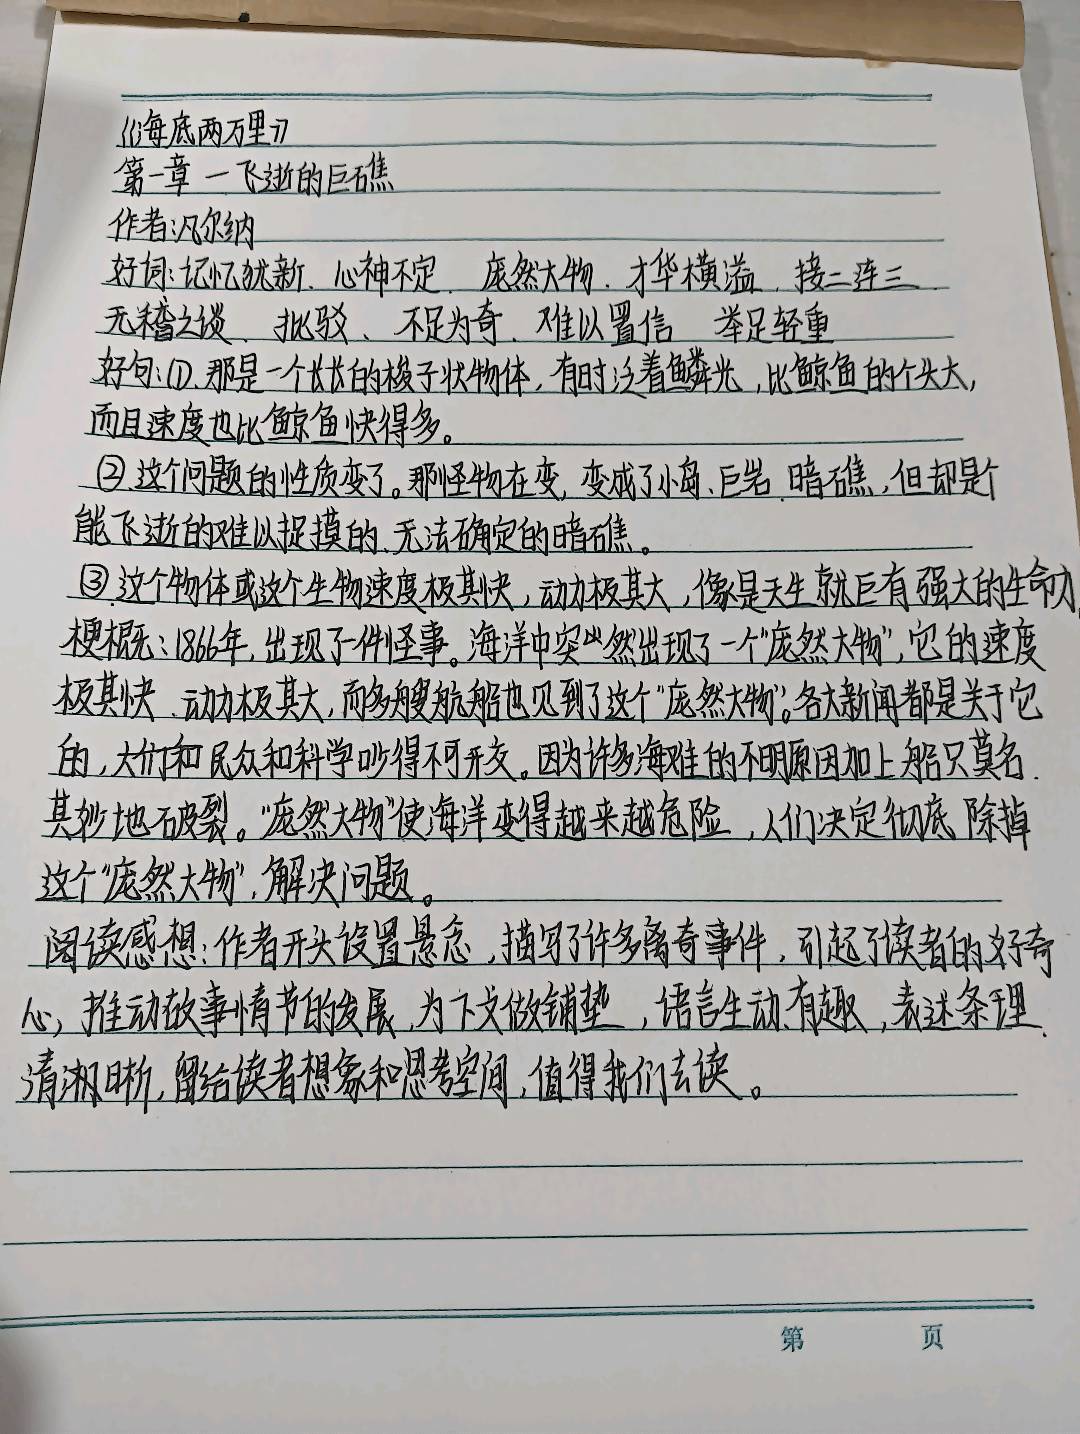 《海底两万里》
第一章 一飞逝的巨礁
作者:凡尔纳
好词:记忆犹新、心神不定、庞然大物、才华横溢、接二连三
无稽之谈、批驳、不足为奇、难以置信 举足轻重
好句:①、那是一个长长的梭子状物体,有时泛着鳞光,比鲸鱼的个头大,
而且速度也比鲸鱼快得多。
②、这个问题的性质变了。那怪物在变,变成了小岛、巨岩、暗礁,但却是个
能飞逝的难以捉摸的、无法确定的暗礁。
③、这个物体或这个生物速度极其快,动力极其大,像是天生就巨有强大的生命力。
梗概:1866年,出现了一件怪事。海洋中突然出现了一个“庞然大物”,它的速度
极其快、动力极其大,而多艘航船也见到了这个“庞然大物”。各大新闻都是关于它
的,大们和民众和科学吵得不可开交。因为许多海难的不明原因加上船只莫名
其妙地破裂。“庞然大物”使海洋变得越来越危险,人们决定彻底除掉
这个“庞然大物”,解决问题。
阅读感想:作者开头设置悬念,描写了许多离奇事件,引起了读者的好奇
心,推动故事情节的发展,为下文做铺垫,语言生动、有趣,表述条理
清淅晰,留给读者想象和思考空间,值得我们去读。
第 页